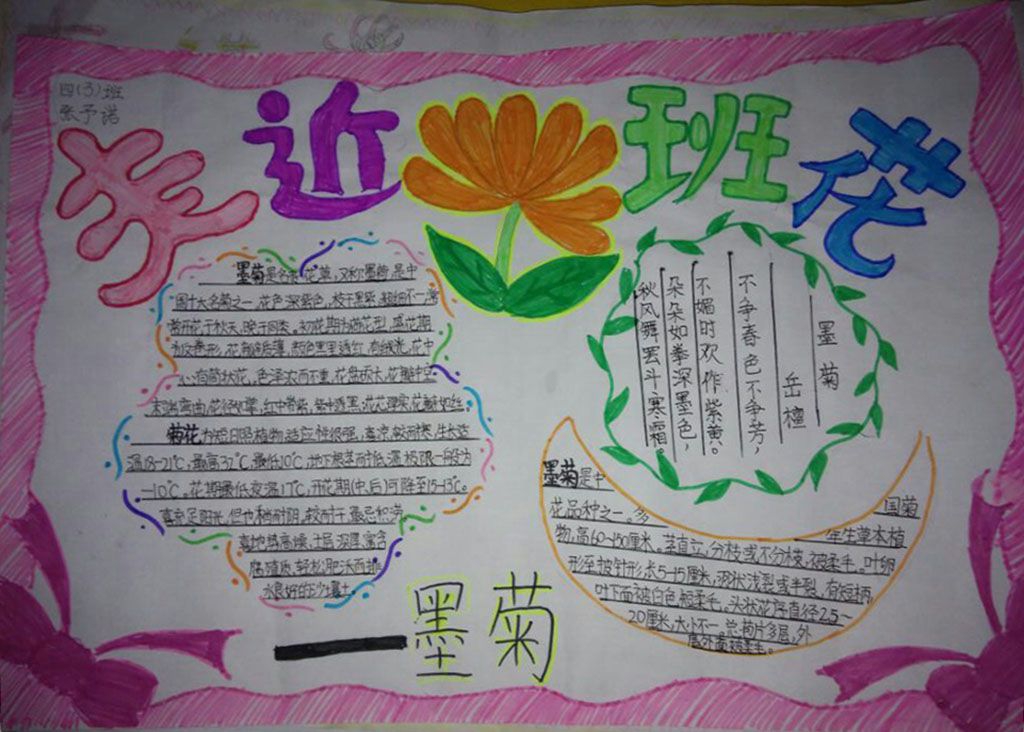 四(3)班
张予诺
走近班花
墨菊是名贵花草,又称墨荷是中
国十大名菊之一花色深紫色,枝干黑紫,粗细不一,通
常开花于秋天,晚于同类,初花期为荷花型,盛花期
为反卷形,花瓣
心有筒状花,色泽浓而不重,花盘硕大,花瓣中空
末端弯曲,花径
菊花为短日照植物,适应性很强,喜凉,较耐寒,生长适
温18-21℃,最高32℃,最低10℃,地下根茎耐低温极限一般为
-10℃。花期最低夜温17℃,开花期(中、后)可降至15-13℃。
喜充足阳光,但也稍耐阴,较耐干,最忌积涝
喜地势高燥、土层深厚、富含
腐殖质、轻松肥沃而排
水良好的沙壤土
墨菊
岳檀
不争春色不争芳,
不媚时欢作紫黄。
朵朵如拳深墨色,
秋风舞罢斗寒霜。
墨菊是中
国菊
花品种之一。多
年生草本植
物,高60-150厘米。茎直立,分枝或不分枝,被柔毛。叶卵
形至披针形,长5-15厘米,羽状浅裂或半裂,有短柄,
叶下面被白色短柔毛。头状花序直径2.5~
20厘米,大小不一总苞片多层,外
层外面被柔毛。
—墨菊